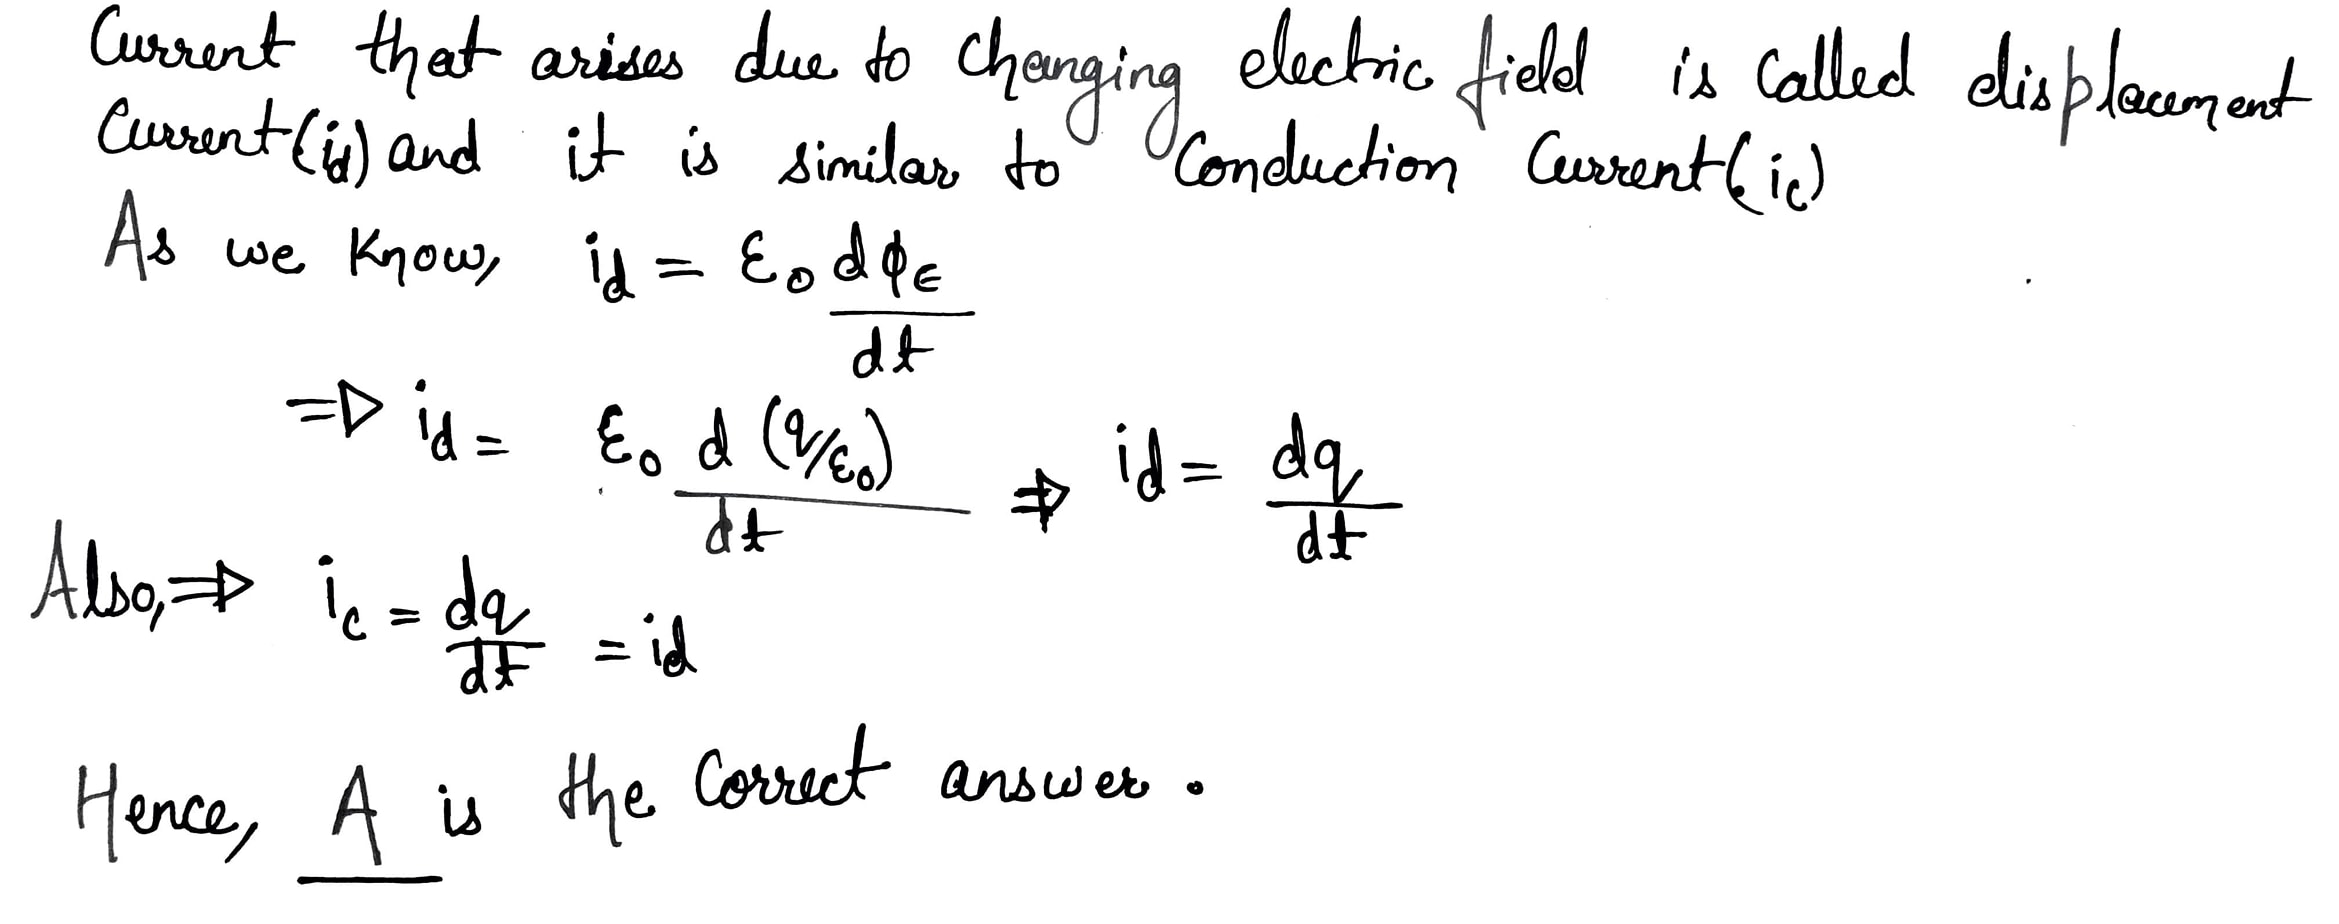 Current that arises due to changing electric field is called displacement
Current(id) and it is similar to Conduction Current(ic)
As we know, id = ε0 dϕE/dt
⇒ id = ε0 d(q/ε0)/dt ⇒ id = dq/dt
Also, ⇒ ic = dq/dt = id
Hence, A is the correct answer.